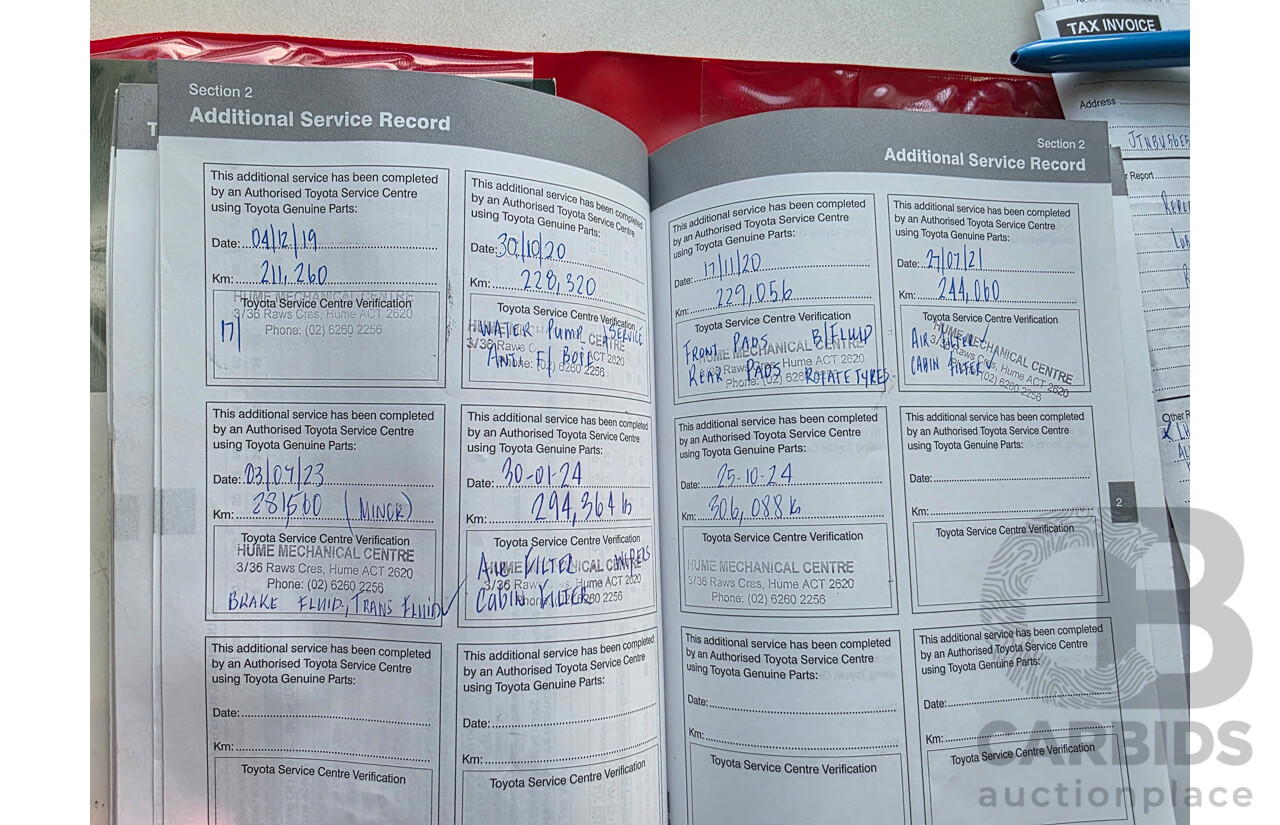 Section 2
Additional Service Record
This additional service has been completed
by an Authorised Toyota Service Centre
using Toyota Genuine Parts:
Date: 04/12/19
Km: 211,260
Toyota Service Centre Verification
HUME MECHANICAL CENTRE
3/36 Raws Cres, Hume ACT 2620
Phone: (02) 6260 2256
17/
This additional service has been completed
by an Authorised Toyota Service Centre
using Toyota Genuine Parts:
Date: 30/10/20
Km: 228,320
Toyota Service Centre Verification
WATER PUMP, SERVICE
ANTI F/BOIL
3/36 Raws ACT 2620
(02) 6260 2256
This additional service has been completed
by an Authorised Toyota Service Centre
using Toyota Genuine Parts:
Date: 03/04/23
Km: 281,560 (MINOR)
Toyota Service Centre Verification
HUME MECHANICAL CENTRE
3/36 Raws Cres, Hume ACT 2620
Phone: (02) 6260 2256
BRAKE FLUID, TRANS FLUID
This additional service has been completed
by an Authorised Toyota Service Centre
using Toyota Genuine Parts:
Date: 30-01-24
Km: 294,364 k
Toyota Service Centre Verification
AIR FILTER WIPERS
CABIN FILTER
3/36 Raws Hume ACT 2620
This additional service has been completed
by an Authorised Toyota Service Centre
using Toyota Genuine Parts:
Date:
Km:
Toyota Service Centre Verification
This additional service has been completed
by an Authorised Toyota Service Centre
using Toyota Genuine Parts:
Date:
Km:
Toyota Service Centre Verification
Section 2
Additional Service Record
This additional service has been completed
by an Authorised Toyota Service Centre
using Toyota Genuine Parts:
Date: 17/11/20
Km: 229,056
Toyota Service Centre Verification
FRONT PADS B/FLUID
HUME MECHANICAL CENTRE
Raws Cres, Hume ACT 2620
REAR PADS ROTATE TYRES
Phone: (02)
This additional service has been completed
by an Authorised Toyota Service Centre
using Toyota Genuine Parts:
Date: 27/07/21
Km: 244,060
Toyota Service Centre Verification
AIR FILTER
CABIN FILTER
HUME MECHANICAL CENTRE
3/36 Raws Cres, Hume ACT 2620
(02) 6260 2256
This additional service has been completed
by an Authorised Toyota Service Centre
using Toyota Genuine Parts:
Date: 25-10-24
Km: 306,088 k
Toyota Service Centre Verification
HUME MECHANICAL CENTRE
3/36 Raws Cres, Hume ACT 2620
Phone: (02) 6260 2256
This additional service has been completed
by an Authorised Toyota Service Centre
using Toyota Genuine Parts:
Date:
Km:
Toyota Service Centre Verification
This additional service has been completed
by an Authorised Toyota Service Centre
using Toyota Genuine Parts:
Date:
Km:
Toyota Service Centre Verification
This additional service has been completed
by an Authorised Toyota Service Centre
using Toyota Genuine Parts:
Date:
Km:
Toyota Service Centre Verification
2
TAX INVOICE
Address
Report
CARBIDS
auctionplace